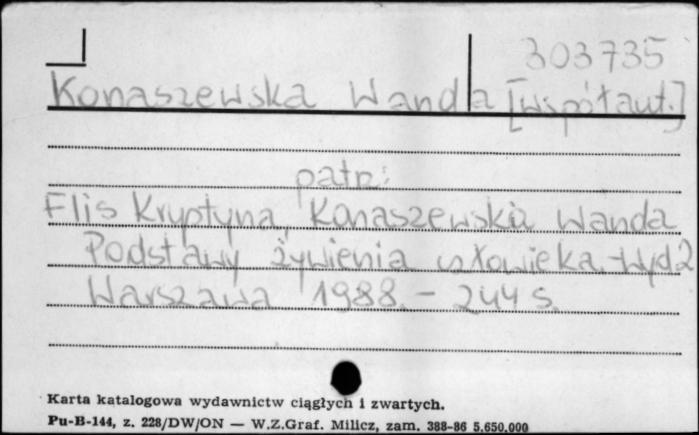 303735
Konaszewska Wanda [współaut.]
patrz:
Flis Kryptyna, Konaszewska Wanda
Podstawy żywienia człowieka.-Wyd2
Warszawa 1988.- 244 s.
Karta katalogowa wydawnictw ciągłych i zwartych.
Pu-B-144, z. 228/DW/ON — W.Z.Graf. Milicz, zam. 388-86 5.650.000